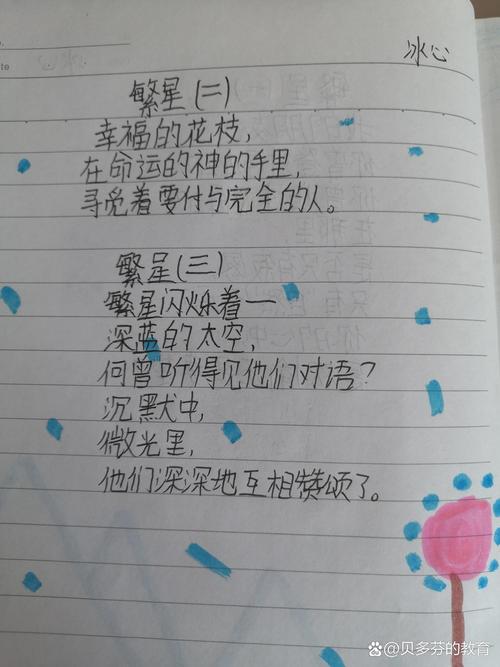 冰心
繁星(二)
幸福的花枝,
在命运的神的手里,
寻觅着要付与完全的人。
繁星(三)
繁星闪烁着一
深蓝的太空,
何曾听得见他们对语?
沉默中,
微光里,
他们深深地互相赞颂了。
@贝多芬的教育